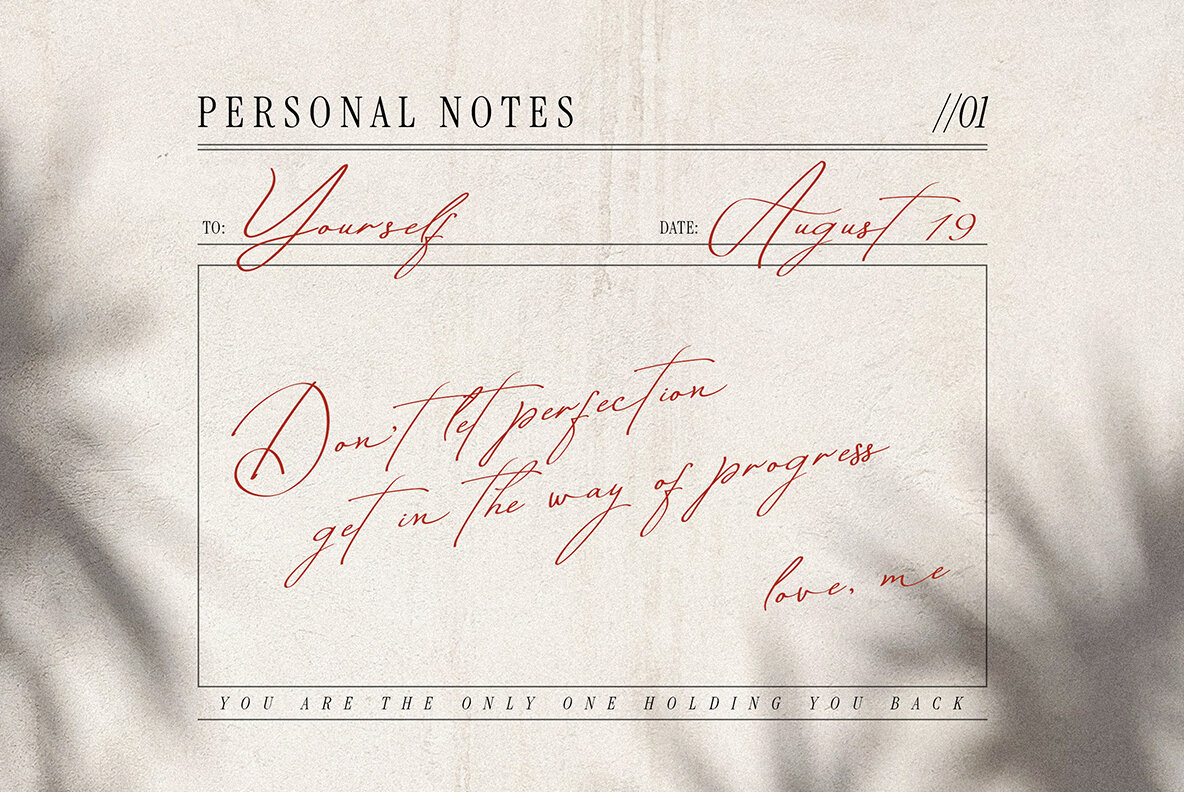 PERSONAL NOTES //01
TO: Yourself DATE: August 19
Don't let perfection
get in the way of progress
love, me
YOU ARE THE ONLY ONE HOLDING YOU BACK